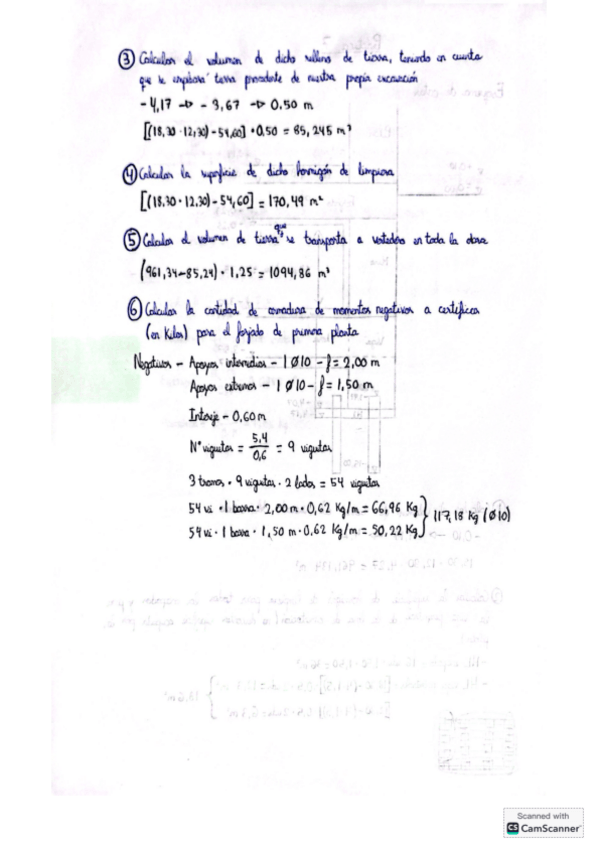 ③ Calcular el volumen de dicho relleno de tierra, teniendo en cuenta
que se empleara tierra procedente de nuestra propia excavación
- 4,17 -> - 3,67 -> 0,50 m
[(18,30 · 12,30) - 54,60] · 0,50 = 85,245 m³
④ Calcular la superficie de dicho hormigón de limpieza
[(18,30 · 12,30) - 54,60] = 170,49 m²
⑤ Calcular el volumen de tierra que se transporta a vertedero en toda la obra
(961,34 - 85,24) · 1,25 = 1094,86 m³
⑥ Calcular la cantidad de armadura de momentos negativos a certificar
(en Kilos) para el forjado de primera planta
Negativos - Apoyos intermedios - 1 Ø10 - l = 2,00 m
Apoyos extremos - 1 Ø10 - l = 1,50 m
Intereje - 0,60 m
Nº viguetas = 5,4 / 0,6 = 9 viguetas
3 tramos · 9 viguetas · 2 lados = 54 viguetas
54 vi · 1 barra · 2,00 m · 0,62 Kg/m = 66,96 Kg
54 vi · 1 barra · 1,50 m · 0,62 Kg/m = 50,22 Kg } 117,18 Kg (Ø10)
Scanned with
CS CamScanner